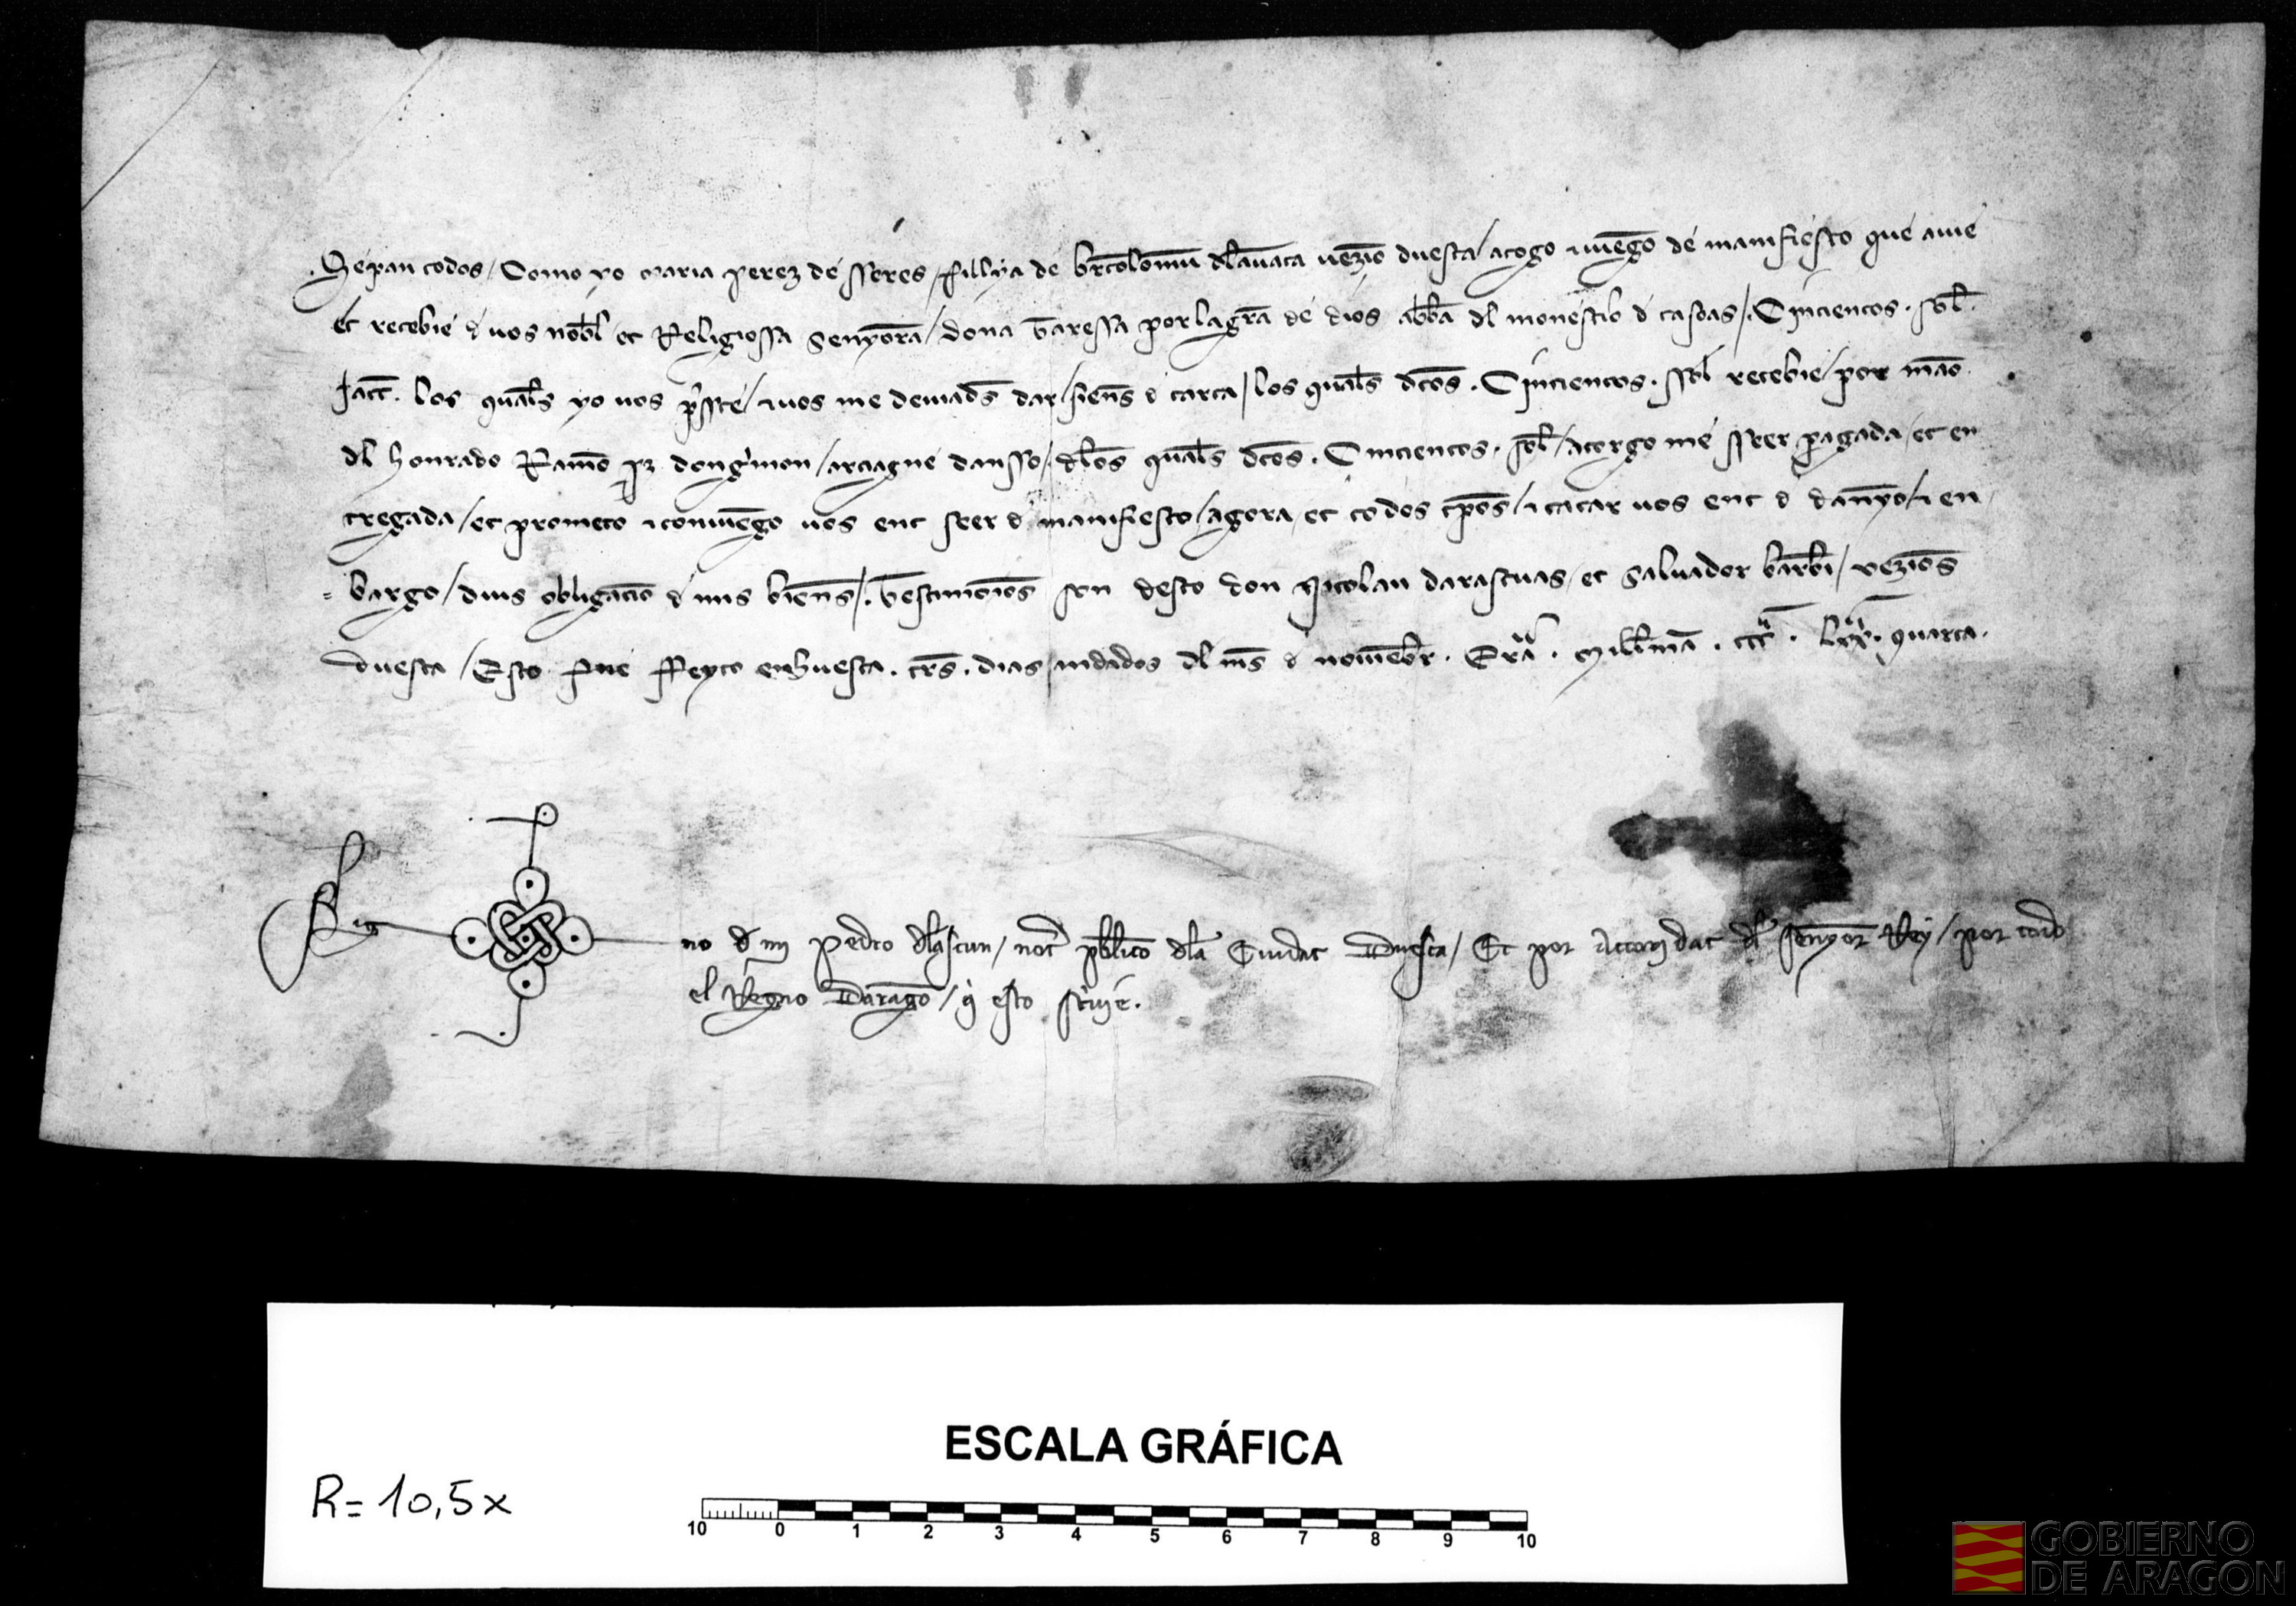 Sepan todos / Como yo maria perez de sseres / fillya de brtolomeu dlauata vezio duesca / atogo τ viengo de manifiesto que auie
et recebie d vos nobl et Religiossa senyora / dona Taressa por la gra de dios abba dl monestio d casbas / . Cincientos . sol
Jacc . los quals yo vos preste / τ vos me deuiads dar / siens d carta / los quals dtos . Cincientos . sol recebie / por mao
dl honrado Ramo pz dongmon / / dlos quals dtos . Cincientos . sol / atorgo me sseer pagada / et en
tregada / et prometo τ conuiengo vos ent seer d manifiesto / agora / et todos tpos / τ catar vos ent d danyo / τ en
= bargo / dius obligacio d mis biens / . Testimonios son desto don Nicolau darascuas / et Saluador barbi / vezios
duesca / Esto fue ffeyto enhuesca . tres . dias andados dl mes d nouiebr . Era . Millima . CCCa . Lxxa . quarta .
Sig no d mi Pedro dlascun / not publico dla Ciudat Duesca / Et por Actoridat dl senyor Rey / por todo
el Regno Darago / q esto scriuie .
ESCALA GRÁFICA
R = 10,5 x
10 0 1 2 3 4 5 6 7 8 9 10
GOBIERNO
DE ARAGON